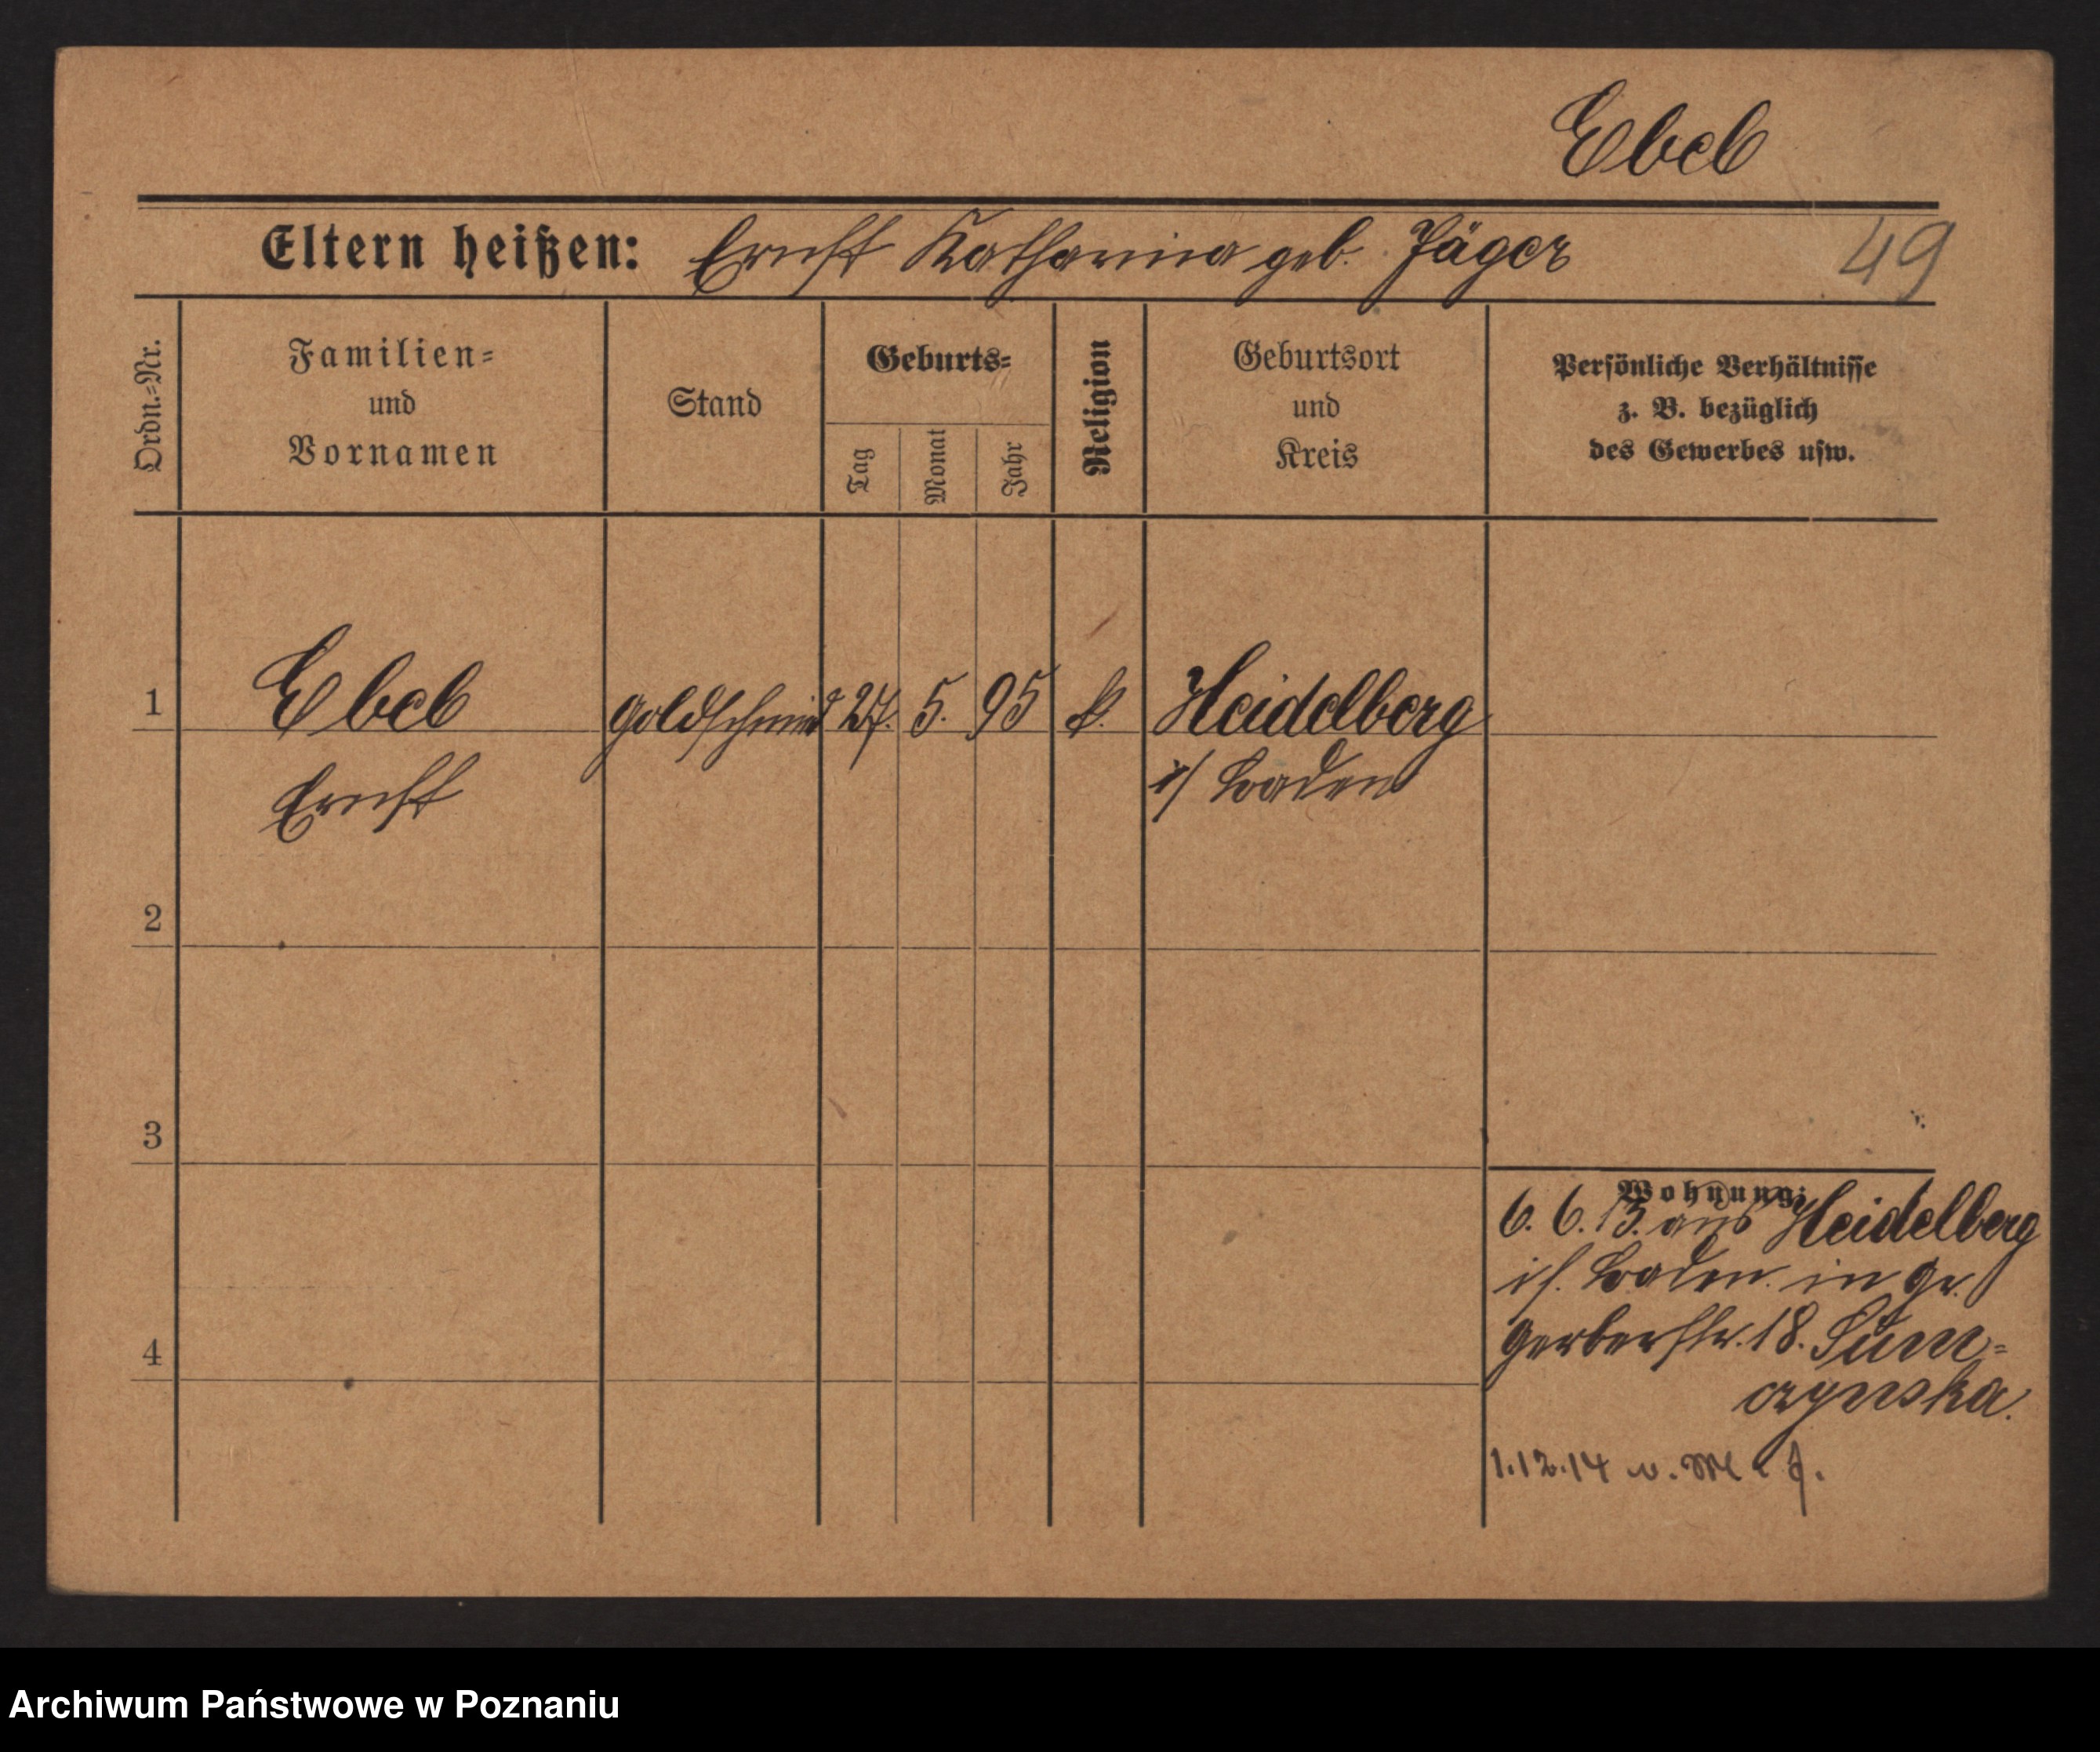 Ebeb
Eltern heißen: Ernst Katharina geb. Jäger
49
Ordn.=Nr.
Familien=
und
Vornamen
Stand
Geburts=
Tag
Monat
Jahr
Religion
Geburtsort
und
Kreis
Persönliche Verhältnisse
z. B. bezüglich
des Gewerbes usw.
1 Ebeb Goldschmied 27. 5. 95 k. Heidelberg
Ernst i/ Baden
2
3
4
Wohnung:
6. 6. 13. aus Heidelberg
i/. Baden in Gr.
Gerberstr. 18. Sum=
czynska.
1.12.14 v.
Archiwum Państwowe w Poznaniu